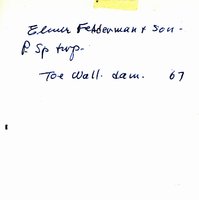 Elmer Fetterman + Son.
P Sp twp.
Toe Wall. dam. 67